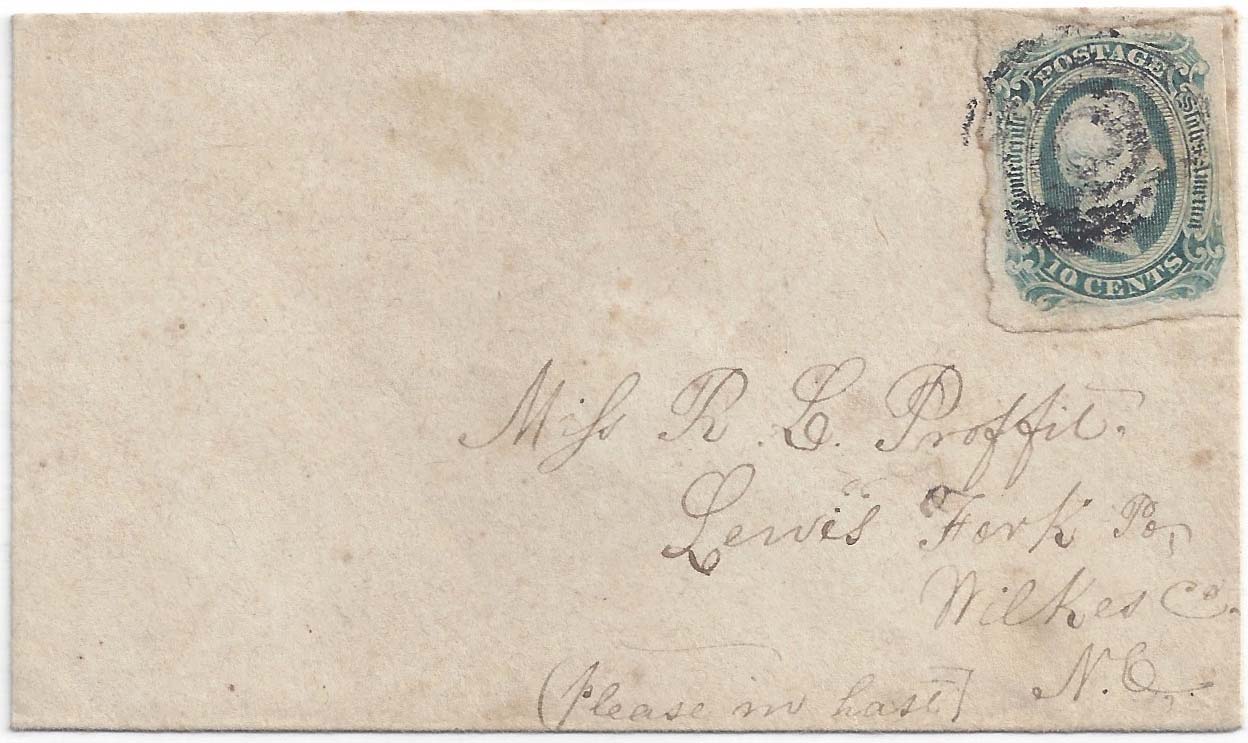 POSTAGE
The Confederate States of America
10 CENTS
Miss R. L. Proffit.
Lewis Fork Po,
Wilkes Co.
N.C.,
(please in hast)